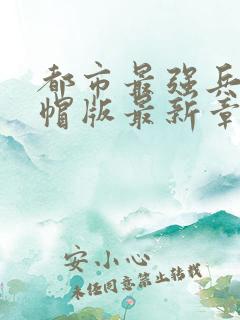 都市最强兵
帽版最新章
安小心
未经同意禁止转载